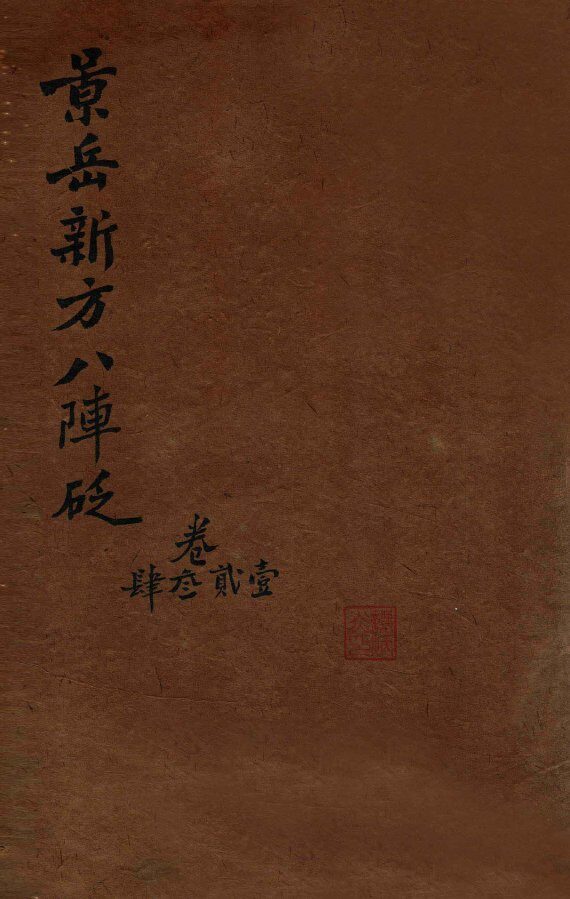 景岳新方八陣砭
卷
壹貳叁肆